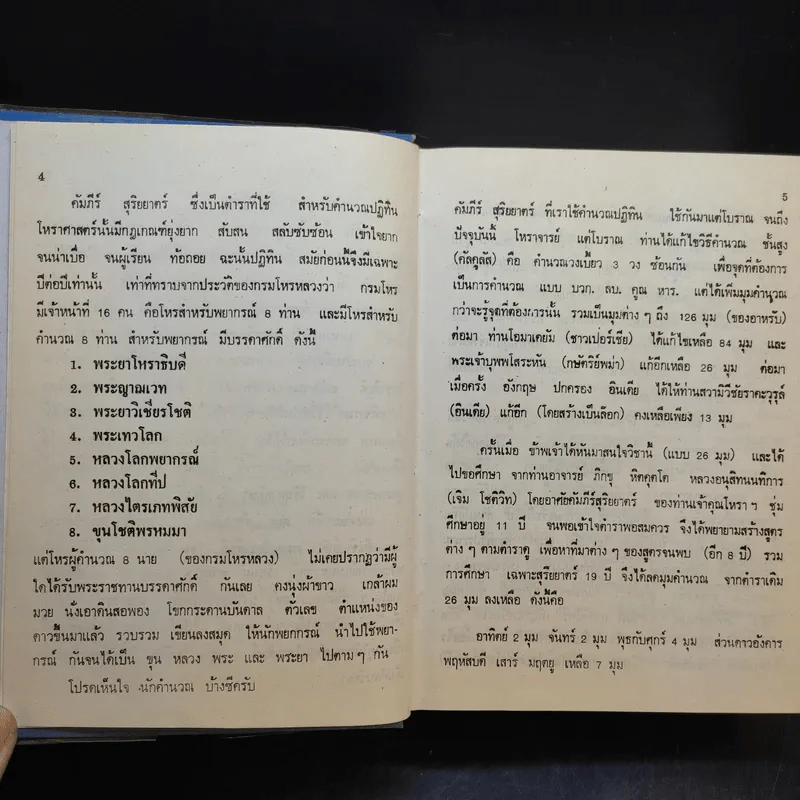 4
คัมภีร์ สุริยยาตร์ ซึ่งเป็นตำราที่ใช้ สำหรับคำนวณปฏิทิน
โหราศาสตร์นั้นมีกฎเกณฑ์ยุ่งยาก สับสน สลับซับซ้อน เข้าใจยาก
จนน่าเบื่อ จนผู้เรียน ท้อถอย ฉะนั้นปฏิทิน สมัยก่อนนี้จึงมีเฉพาะ
ปีต่อปีเท่านั้น เท่าที่ทราบจากประวัติของกรมโหรหลวงว่า กรมโหร
มีเจ้าหน้าที่ 16 คน คือโหรสำหรับพยากรณ์ 8 ท่าน และมีโหรสำหรับ
คำนวณ 8 ท่าน สำหรับพยากรณ์ มีบรรดาศักดิ์ ดังนี้
1. พระยาโหราธิบดี
2. พระญาณเวท
3. พระยาวิเชียรโชติ
4. พระเทวโลก
5. หลวงโลกพยากรณ์
6. หลวงโลกทีป
7. หลวงไตรเภทพิสัย
8. ขุนโชติพรหมมา
แต่โหรผู้คำนวณ 8 นาย (ของกรมโหรหลวง) ไม่เคยปรากฏว่ามีผู้
ใดได้รับพระราชทานบรรดาศักดิ์ กันเลย คงนุ่งผ้าขาว เกล้าผม
มวย นั่งเอาดินสอพอง โขกกระดานบันดาล ตัวเลข ตำแหน่งของ
ดาวขึ้นมาแล้ว รวบรวม เขียนลงสมุด ให้นักพยกกรณ์ นำไปใช้พยา-
กรณ์ กันจนได้เป็น ขุน หลวง พระ และ พระยา ไปตามๆ กัน
โปรดเห็นใจ นักคำนวณ บ้างซีครับ
5
คัมภีร์ สุริยยาตร์ ที่เราใช้คำนวณปฏิทิน ใช้กันมาแต่โบราณ จนถึง
ปัจจุบันนี้ โหราจารย์ แต่โบราณ ท่านได้แก้ไขวิธีคำนวณ ชั้นสูง
(คัลคูลัส) คือ คำนวณวงเบี้ยว 3 วง ซ้อนกัน เพื่อจุดที่ต้องการ
เป็นการคำนวณ แบบ บวก. ลบ. คูณ หาร. แต่ได้เพิ่มมุมคำนวณ
กว่าจะรู้จุดที่ต้องการนั้น รวมเป็นมุมต่างๆ ถึง 126 มุม (ของอาหรับ)
ต่อมา ท่านโอมาเคยัม (ชาวเปอร์เซีย) ได้แก้ไขเหลือ 84 มุม และ
พระเจ้าบุพพโสระหัน (กษัตริย์พม่า) แก้อีกเหลือ 26 มุม ต่อมา
เมื่อครั้ง อังกฤษ ปกครอง อินเดีย ได้ให้ท่านสวามีวิชัยราคะวุรุล์
(อินเดีย) แก้อีก (โดยสร้างเป็นล๊อก) คงเหลือเพียง 13 มุม
ครั้นเมื่อ ข้าพเจ้าได้หันมาสนใจวิชานี้ (แบบ 26 มุม) และได้
ไปขอศึกษา จากท่านอาจารย์ ภิกขุ หิตคุตโต หลวงอนุสิทนนทิการ
(เจิม โชติวิท) โดยอาศัยคัมภีร์สุริยยาตร์ ของท่านเจ้าคุณโหราฯ ชุ่ม
ศึกษาอยู่ 11 ปี จนพอเข้าใจตำราพอสมควร จึงได้พยายามสร้างสูตร
ต่างๆ ตามตำราดู เพื่อหาที่มาต่างๆ ของสูตรจนพบ (อีก 8 ปี) รวม
การศึกษา เฉพาะสุริยยาตร์ 19 ปี จึงได้ลดมุมคำนวณ จากตำราเดิม
26 มุม ลงเหลือ ดังนี้คือ
อาทิตย์ 2 มุม จันทร์ 2 มุม พุธกับศุกร์ 4 มุม ส่วนดาวอังคาร
พฤหัสบดี เสาร์ มฤตยู เหลือ 7 มุม